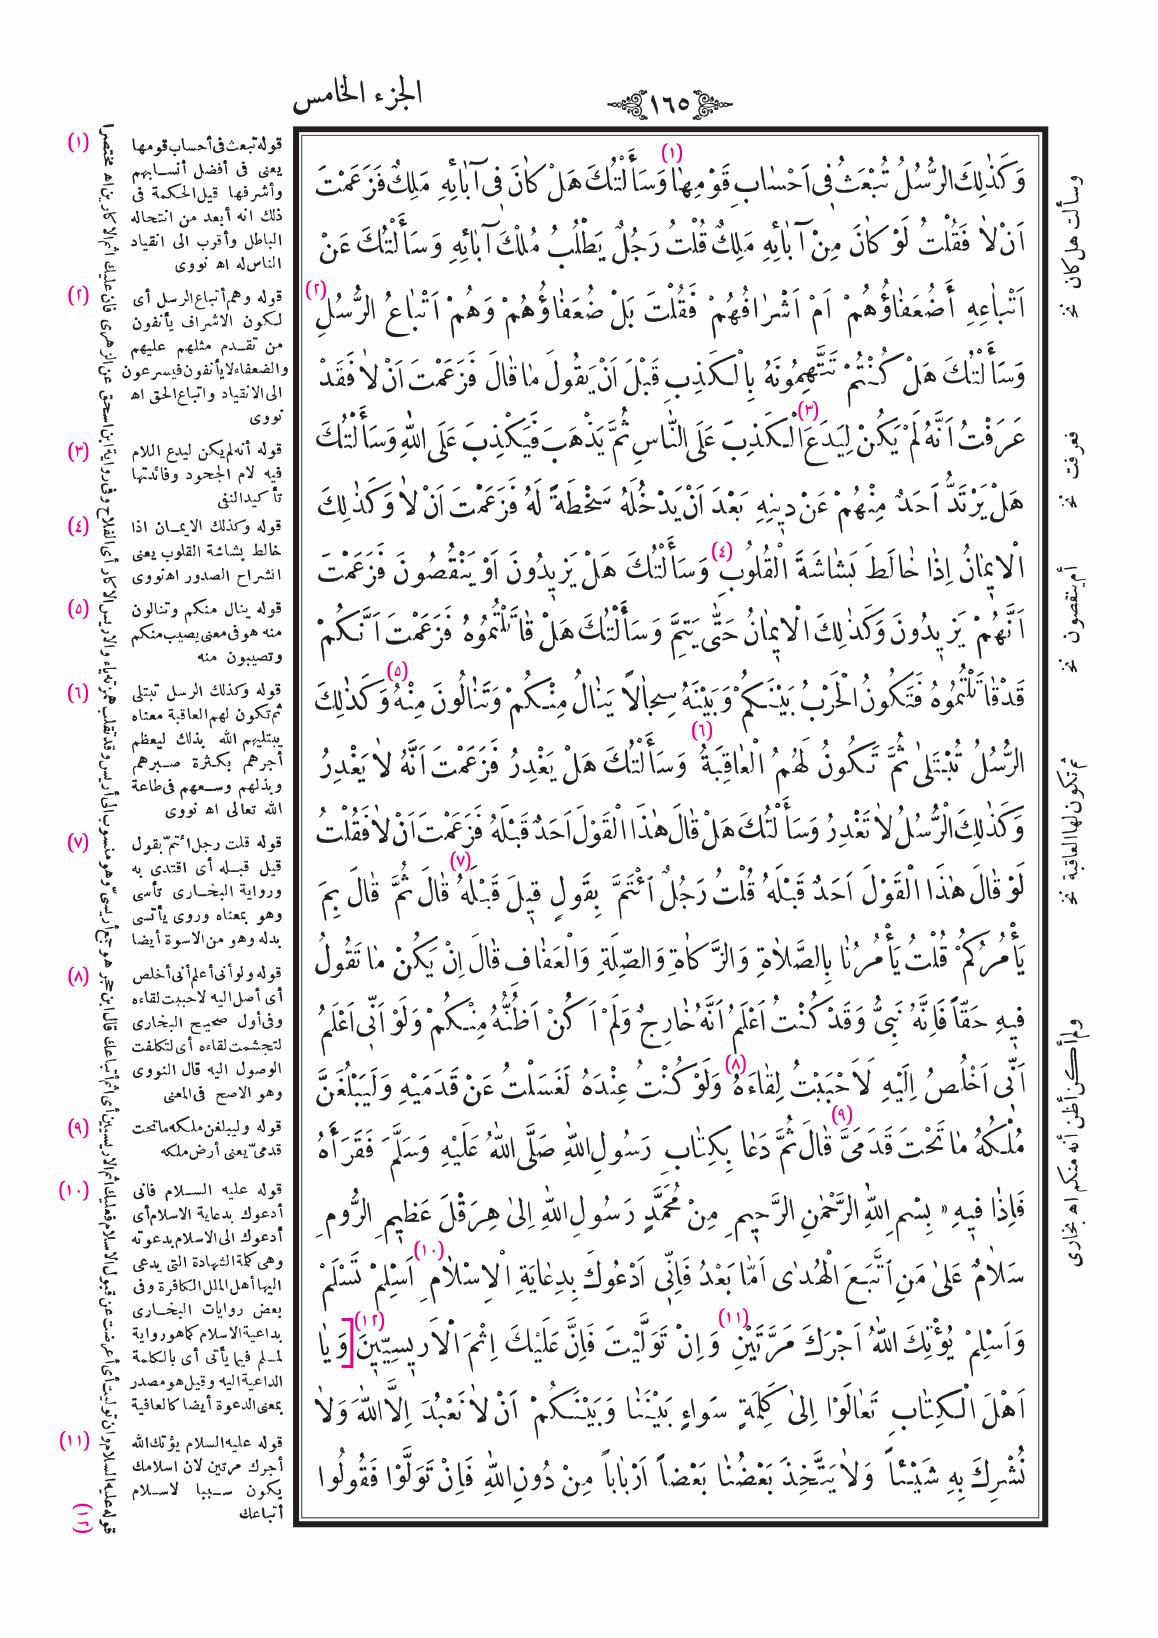 الجزء الخامس
١٦٥
وَكَذٰلِكَ الرُّسُلُ تُبْعَثُ فِى اَحْسٰابِ قَوْمِهٰا (١) وَسَأَلْتُكَ هَلْ كٰانَ فِى آبٰائِهِ مَلِكٌ فَزَعَمْتَ
اَنْ لاٰ فَقُلْتُ لَوْ كٰانَ مِنْ آبٰائِهِ مَلِكٌ قُلْتُ رَجُلٌ يَطْلُبُ مُلْكَ آبٰائِهِ وَسَأَلْتُكَ عَنْ
اَتْبٰاعِهِ أَضُعَفٰاؤُهُمْ اَمْ اَشْرٰافُهُمْ فَقُلْتَ بَلْ ضُعَفٰاؤُهُمْ وَهُمْ اَتْبٰاعُ الرُّسُلِ (٢)
وَسَأَلْتُكَ هَلْ كُنْتُمْ تَتَّهِمُونَهُ بِالْكَذِبِ قَبْلَ اَنْ يَقُولَ مٰا قٰالَ فَزَعَمْتَ اَنْ لاٰ فَقَدْ
عَرَفْتُ اَنَّهُ لَمْ يَكُنْ لِيَدَعَ (٣) الْكَذِبَ عَلَى النّٰاسِ ثُمَّ يَذْهَبَ فَيَكْذِبَ عَلَى اللّٰهِ وَسَأَلْتُكَ
هَلْ يَرْتَدُّ اَحَدٌ مِنْهُمْ عَنْ دِينِهِ بَعْدَ اَنْ يَدْخُلَهُ سَخْطَةً لَهُ فَزَعَمْتَ اَنْ لاٰ وَكَذٰلِكَ
الْاِيمٰانُ اِذٰا خٰالَطَ بَشٰاشَةَ الْقُلُوبِ (٤) وَسَأَلْتُكَ هَلْ يَزِيدُونَ اَوْ يَنْقُصُونَ فَزَعَمْتَ
اَنَّهُمْ يَزِيدُونَ وَكَذٰلِكَ الْاِيمٰانُ حَتّٰى يَتِمَّ وَسَأَلْتُكَ هَلْ قٰاتَلْتُمُوهُ فَزَعَمْتَ اَنَّكُمْ
قَدْ قٰاتَلْتُمُوهُ فَتَكُونُ الْحَرْبُ بَيْنَكُمْ وَبَيْنَهُ سِجٰالاً يَنٰالُ مِنْكُمْ وَتَنٰالُونَ مِنْهُ (٥) وَكَذٰلِكَ
الرُّسُلُ تُبْتَلىٰ ثُمَّ تَكُونُ لَهُمُ الْعٰاقِبَةُ (٦) وَسَأَلْتُكَ هَلْ يَغْدِرُ فَزَعَمْتَ اَنَّهُ لاٰ يَغْدِرُ
وَكَذٰلِكَ الرُّسُلُ لاٰ تَغْدِرُ وَسَأَلْتُكَ هَلْ قٰالَ هٰذَا الْقَوْلَ اَحَدٌ قَبْلَهُ فَزَعَمْتَ اَنْ لاٰ فَقُلْتُ
لَوْ قٰالَ هٰذَا الْقَوْلَ اَحَدٌ قَبْلَهُ قُلْتُ رَجُلٌ اَئْتَمَّ بِقَوْلٍ قِيلَ قَبْلَهُ (٧) قٰالَ ثُمَّ قٰالَ بِمَ
يَأْمُرُكُمْ قُلْتُ يَأْمُرُنٰا بِالصَّلاٰةِ وَالزَّكٰاةِ وَالصِّلَةِ وَالْعَفٰافِ قٰالَ اِنْ يَكُنْ مٰا تَقُولُ
فِيهِ حَقّاً فَاِنَّهُ نَبِىٌّ وَقَدْ كُنْتُ اَعْلَمُ اَنَّهُ خٰارِجٌ وَلَمْ اَكُنْ اَظُنُّهُ مِنْكُمْ وَلَوْ اَنِّى اَعْلَمُ
اَنِّى اَخْلُصُ اِلَيْهِ لَاَحْبَبْتُ لِقٰاءَهُ (٨) وَلَوْ كُنْتُ عِنْدَهُ لَغَسَلْتُ عَنْ قَدَمَيْهِ وَلَيَبْلُغَنَّ
مُلْكُهُ مٰا تَحْتَ قَدَمَىَّ (٩) قٰالَ ثُمَّ دَعٰا بِكِتٰابِ رَسُولِ اللّٰهِ صَلَّى اللّٰهُ عَلَيْهِ وَسَلَّمَ فَقَرَأَهُ
فَاِذٰا فِيهِ « بِسْمِ اللّٰهِ الرَّحْمٰنِ الرَّحِيمِ مِنْ مُحَمَّدٍ رَسُولِ اللّٰهِ اِلىٰ هِرَقْلَ عَظِيمِ الرُّومِ
سَلاٰمٌ عَلىٰ مَنِ اتَّبَعَ الْهُدٰى اَمّٰا بَعْدُ فَاِنِّى اَدْعُوكَ بِدِعٰايَةِ الْاِسْلاٰمِ (١٠) اَسْلِمْ تَسْلَمْ
وَاَسْلِمْ يُؤْتِكَ اللّٰهُ اَجْرَكَ مَرَّتَيْنِ (١١) وَاِنْ تَوَلَّيْتَ فَاِنَّ عَلَيْكَ اِثْمَ الْاَرِيسِيِّينَ (١٢) [وَيٰا
اَهْلَ الْكِتٰابِ تَعٰالَوْا اِلىٰ كَلِمَةٍ سَوٰاءٍ بَيْنَنٰا وَبَيْنَكُمْ اَنْ لاٰ نَعْبُدَ اِلَّا اللّٰهَ وَلاٰ
نُشْرِكَ بِهِ شَيْئاً وَلاٰ يَتَّخِذَ بَعْضُنٰا بَعْضاً اَرْبٰاباً مِنْ دُونِ اللّٰهِ فَاِنْ تَوَلَّوْا فَقُولُوا
وسألت هل كان نخ
فعرفت نخ
أم ينقصون نخ
ثم تكون لها العاقبة نخ
ولم أكن أظن أنه منكم اه بخارى
(١) قوله تبعث فى أحساب قومها
يعنى فى أفضل أنسابهم
وأشرفها قيل الحكمة فى
ذلك انه أبعد من انتحاله
الباطل وأقرب الى انقياد
الناس له اه نووى
(٢) قوله وهم أتباع الرسل أى
لكون الاشراف يأنفون
من تقدم مثلهم عليهم
والضعفاء لا يأنفون فيسرعون
الى الانقياد واتباع الحق اه
نووى
(٣) قوله أنه لم يكن ليدع اللام
فيه لام الجحود وفائدتها
تأكيد النفى
(٤) قوله وكذلك الايمان اذا
خالط بشاشة القلوب يعنى
انشراح الصدور اه نووى
(٥) قوله ينال منكم وتنالون
منه هو فى معنى يصيب منكم
وتصيبون منه
(٦) قوله وكذلك الرسل تبتلى
ثم تكون لهم العاقبة معناه
يبتليهم الله بذلك ليعظم
أجرهم بكثرة صبرهم
وبذلهم وسعهم فى طاعة
الله تعالى اه نووى
(٧) قوله قلت رجل ائتم بقول
قيل قبله أى اقتدى به
ورواية البخارى تأسى
وهو بمعناه وروى يأتسى
بدله وهو من الاسوة أيضا
(٨) قوله ولو أنى أعلم أنى أخلص
أى أصل اليه لاحببت لقاءه
وفى أول صحيح البخارى
لتجشمت لقاءه أى لتكلفت
الوصول اليه قال النووى
وهو الاصح فى المعنى
(٩) قوله وليبلغن ملكه ما تحت
قدمىّ يعنى أرض ملكه
(١٠) قوله عليه السلام فانى
أدعوك بدعاية الاسلام أى
أدعوك الى الاسلام بدعوته
وهى كلمة الشهادة التى يدعى
اليها أهل الملل الكافرة وفى
بعض روايات البخارى
بداعية الاسلام كما هو رواية
لمسلم فيما يأتى أى بالكلمة
الداعية اليه وقيل هو مصدر
بمعنى الدعوة أيضا كالعافية
(١١) قوله عليه السلام يؤتك الله
أجرك مرتين لان اسلامك
يكون سببا لاسلام
أتباعك
(١٢) قوله عليه السلام وان توليت أى أعرضت عن قبول الاسلام فعليك اثم الاريسيين أى اثم أتباعك قال ابن حجر هو جمع أريسىّ وهو منسوب الى أريس وقد تقلب همزته ياء والاريس الاكار أى الفلاح وفى رواية ابن اسحق عن الزهرى فان عليك اثم الاكارين اه مختصرا